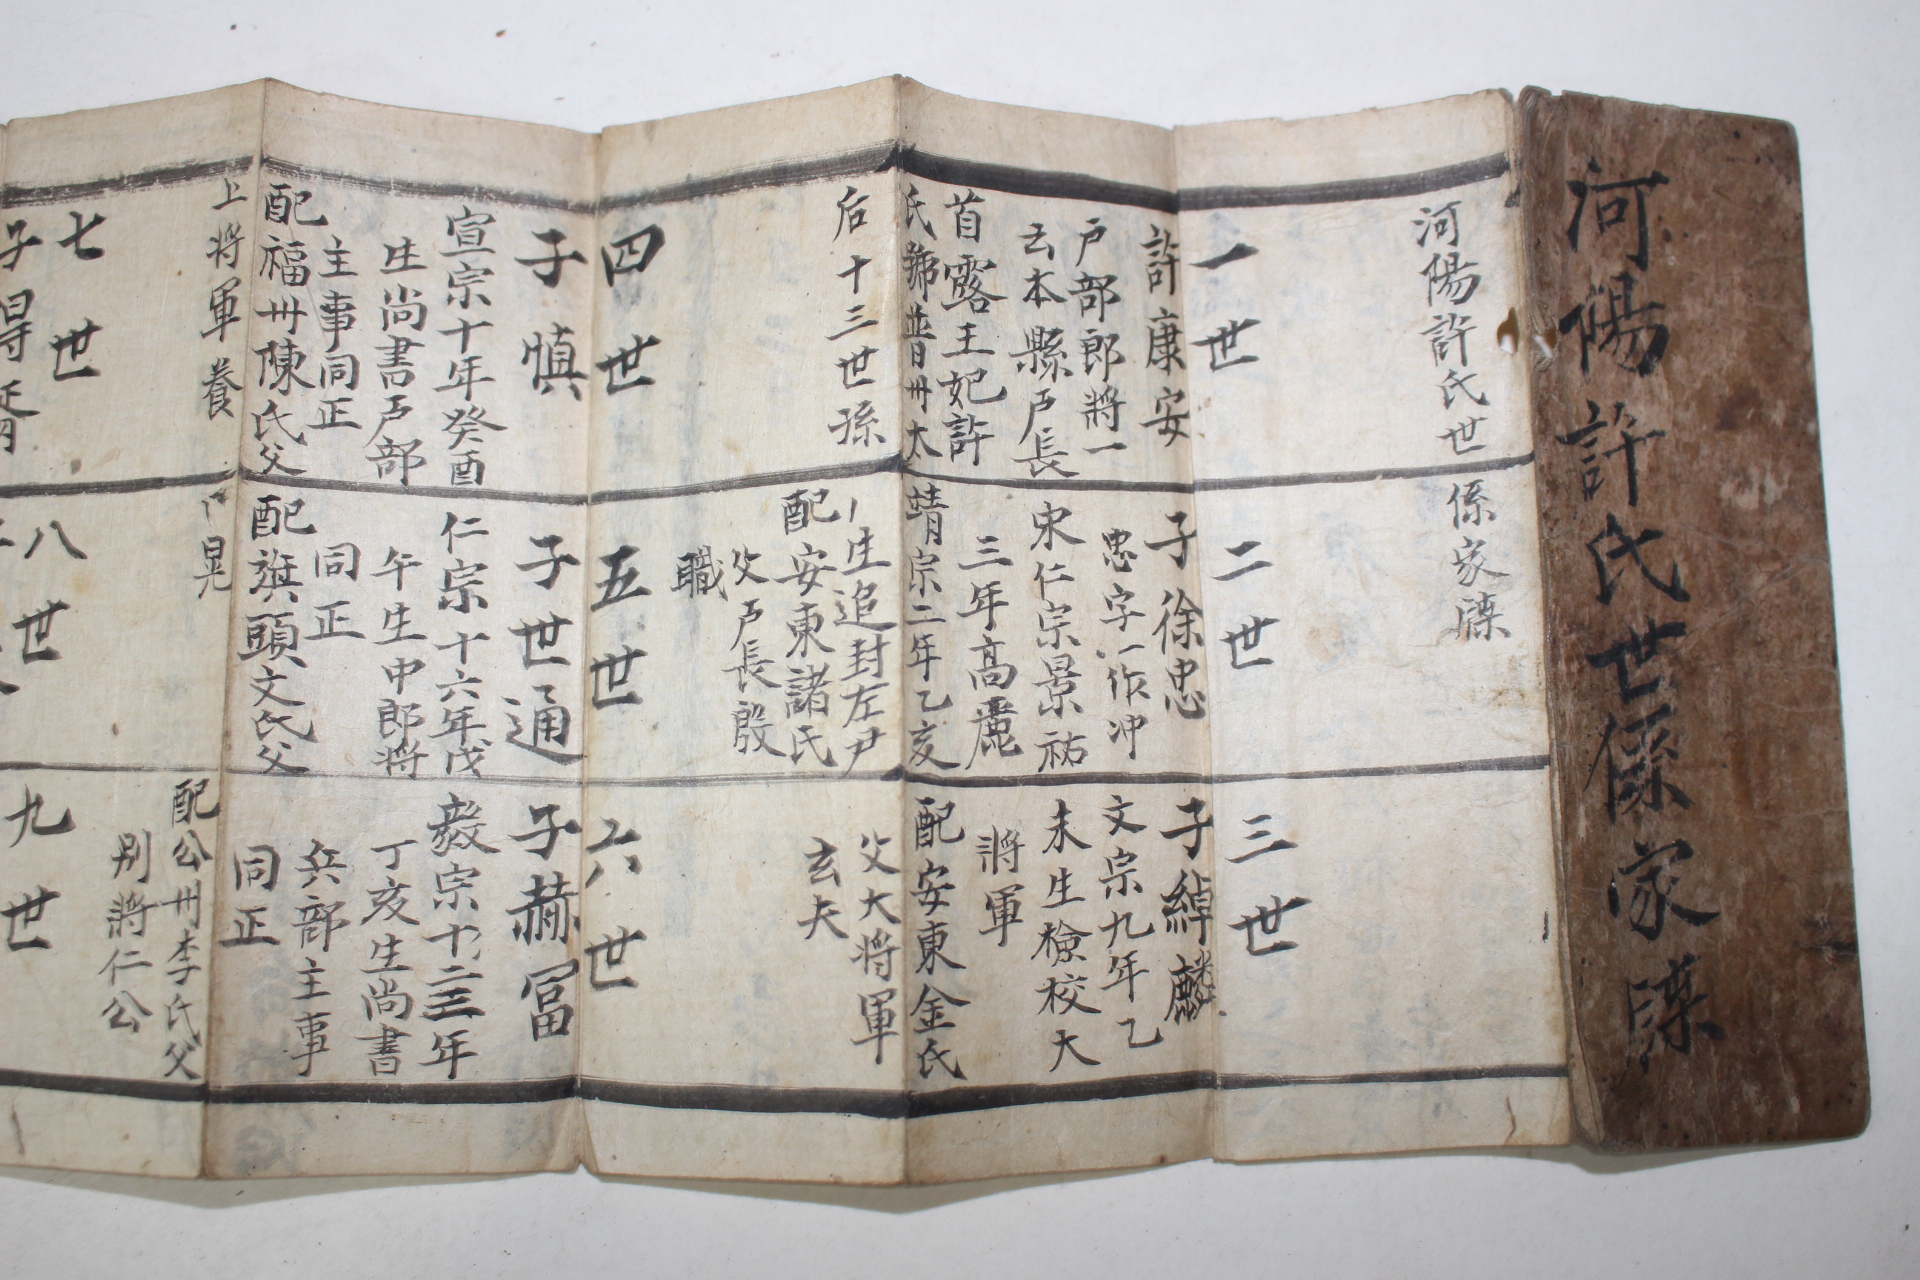 河陽許氏世係家牒
河陽許氏世
係家牒
一世
許康安
戶部郎將一
云本縣戶長
首露王妃許
氏號普州太
后十三世孫
二世
子徐忠
忠字一作冲
宋仁宗景祐
三年高麗
靖宗二年乙亥
生追封左尹
配安東諸氏
父戶長殷
職
三世
子綽麟
文宗九年乙
未生檢校大
將軍
配安東金氏
父大将軍
玄夫
四世
子慎
宣宗十年癸酉
生尚書戶部
主事同正
配福州陳氏父
上将軍養
五世
子世通
仁宗十六年戊
午生中郎将
同正
配旗頭文氏父
晃
六世
子赫冨
毅宗十二三年
丁亥生尚書
兵部主事
同正
配公州李氏父
别將仁公
七世
八世
九世